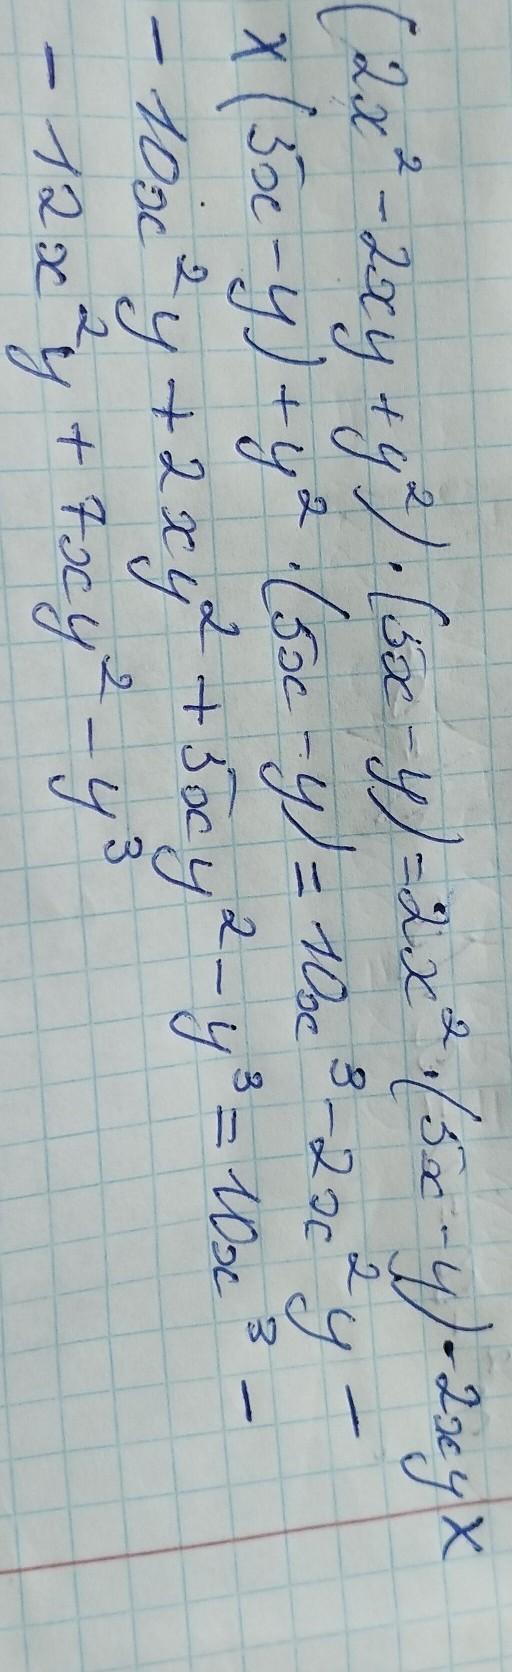 (2x² - 2xy + y²) · (5x - y) = 2x² · (5x - y) - 2xy ×
× (5x - y) + y² · (5x - y) = 10x³ - 2x²y -
- 10x²y + 2xy² + 5xy² - y³ = 10x³ -
- 12x²y + 7xy² - y³